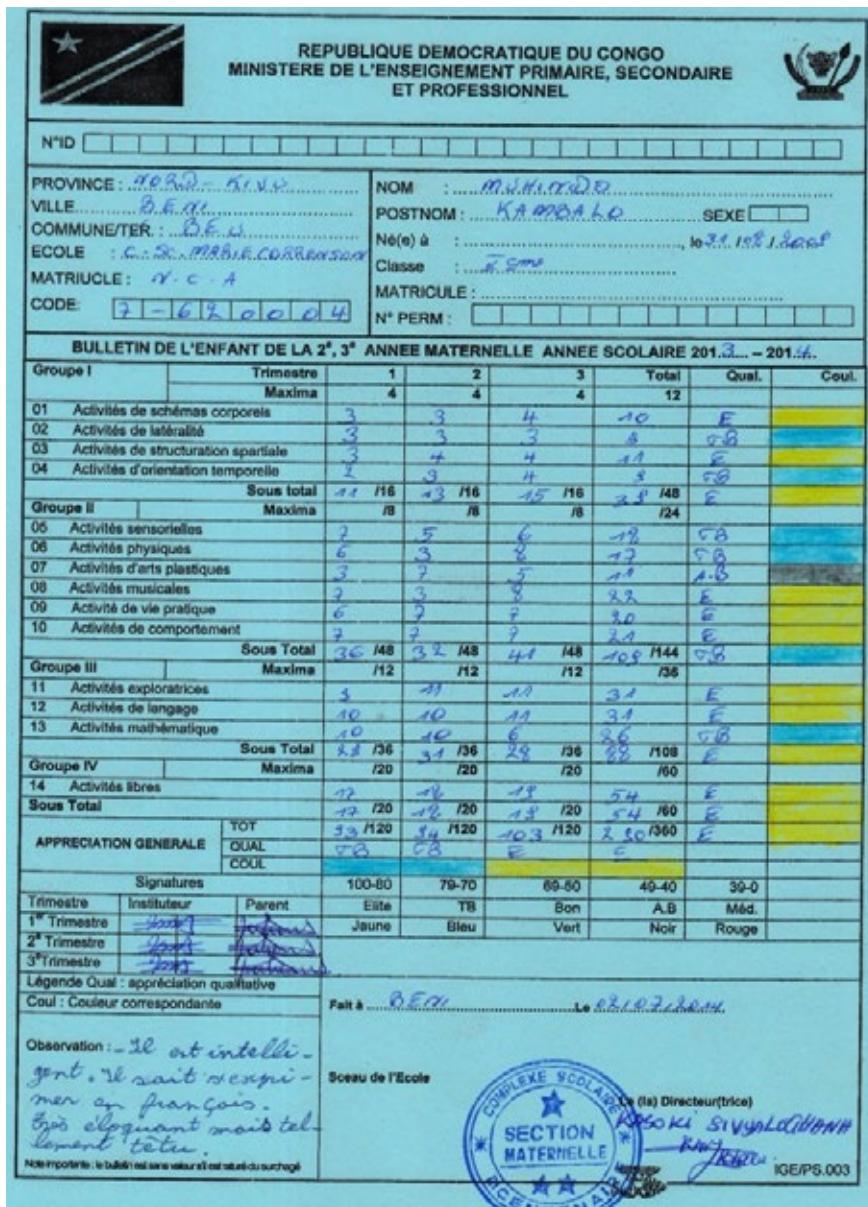 REPUBLIQUE DEMOCRATIQUE DU CONGO
MINISTERE DE L'ENSEIGNEMENT PRIMAIRE, SECONDAIRE
ET PROFESSIONNEL
N°ID
PROVINCE : NORD - KIVU
VILLE BENI
COMMUNE/TER. : BEU
ECOLE : C. SC. MARIE CORRENSON
MATRIUCLE : N - C - A
CODE: 7 - 6 2 0 0 0 4
NOM : MUHINDO
POSTNOM : KAMBALO SEXE
Né(e) à : , le 31 / 08 / 2008
Classe :
MATRICULE :
N° PERM :
BULLETIN DE L'ENFANT DE LA 2°, 3° ANNEE MATERNELLE ANNEE SCOLAIRE 2013 – 2014
Groupe I Trimestre 1 2 3 Total Qual. Coul.
Maxima 4 4 4 12
01 Activités de schémas corporels 3 3 4 10 E
02 Activités de latéralité 3 3 3 9 TB
03 Activités de structuration spartiale 3 4 4 11 E
04 Activités d'orientation temporelle 2 3 4 9 TB
Sous total 11 /16 13 /16 15 /16 39 /48 E
Groupe II Maxima /8 /8 /8 /24
05 Activités sensorielles 7 5 6 18 TB
06 Activités physiques 6 3 8 17 TB
07 Activités d'arts plastiques 3 7 5 11 A.B
08 Activités musicales 7 3 8 22 E
09 Activité de vie pratique 6 7 7 20 E
10 Activités de comportement 7 7 7 21 E
Sous Total 36 /48 32 /48 41 /48 109 /144 TB
Groupe III Maxima /12 /12 /12 /36
11 Activités exploratrices 9 11 11 31 E
12 Activités de langage 10 10 11 31 E
13 Activités mathématique 10 10 6 26 TB
Sous Total 29 /36 31 /36 28 /36 88 /108 E
Groupe IV Maxima /20 /20 /20 /60
14 Activités libres 17 18 19 54 E
Sous Total 17 /20 18 /20 19 /20 54 /60 E
APPRECIATION GENERALE TOT 93 /120 94 /120 103 /120 290 /360 E
QUAL TB TB E E
COUL
Signatures 100-80 79-70 69-50 49-40 39-0
Trimestre Instituteur Parent Elite TB Bon A.B Méd.
1er Trimestre Jaune Bleu Vert Noir Rouge
2° Trimestre
3°Trimestre
Légende Qual : appréciation qualitative
Coul : Couleur correspondante
Fait à BENI Le 02/07/2014
Observation : - Il est intelli-
gent. Il sait s'expri-
mer en français.
Très éloquant mais tel-
lement têtu.
Note importante : le bulletin est sans valeur s'il est raturé ou surchagé
Sceau de l'Ecole
COMPLEXE SCOLAIRE
SECTION
MATERNELLE
Le (la) Directeur(trice)
KASOKI
IGE/PS.003